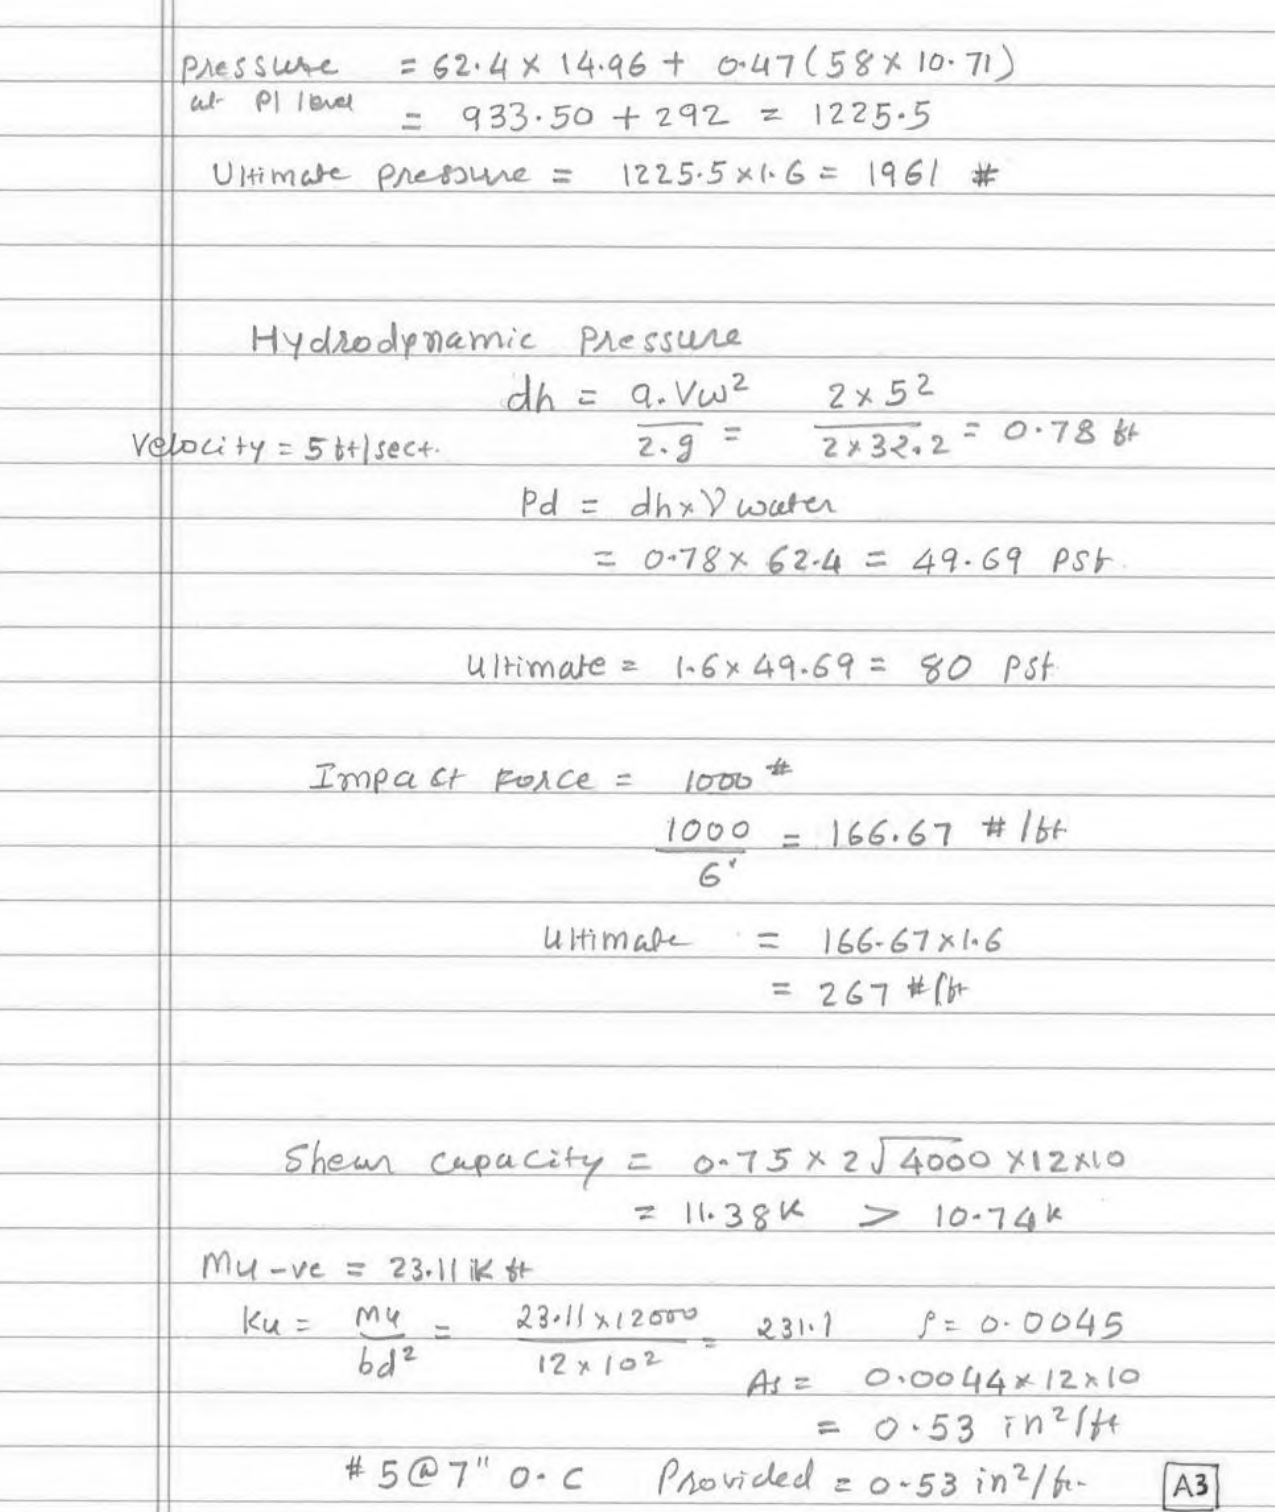 Pressure = 62.4 × 14.96 + 0.47(58 × 10.71)
at Pl level = 933.50 + 292 = 1225.5
Ultimate pressure = 1225.5 × 1.6 = 1961 #
Hydrodynamic Pressure
dh = a.Vw²/2.g = 2 × 5²/2 × 32.2 = 0.78 ft
Velocity = 5 ft/sect.
Pd = dh × γ water
= 0.78 × 62.4 = 49.69 psf.
Ultimate = 1.6 × 49.69 = 80 psf.
Impact Force = 1000 #
1000/6' = 166.67 #/ft
Ultimate = 166.67 × 1.6
= 267 #/ft
Shear capacity = 0.75 × 2√4000 × 12 × 10
= 11.38 K > 10.74 K
Mu -ve = 23.11 K ft
Ku = Mu/bd² = 23.11 × 12000/12 × 10² = 231.1 ρ = 0.0045
As = 0.0044 × 12 × 10
= 0.53 in²/ft
# 5 @ 7" O.C Provided = 0.53 in²/ft.
A3